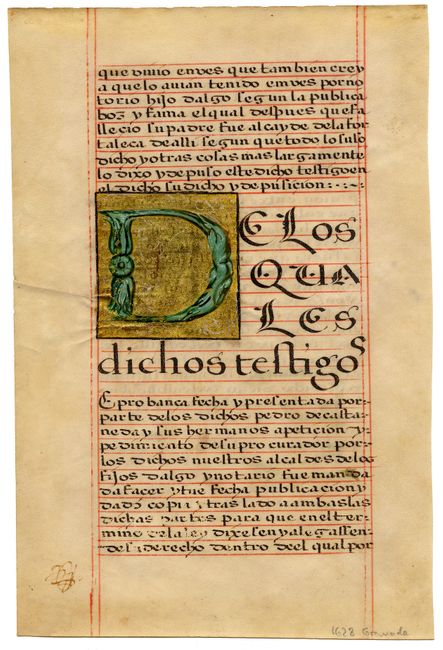 que vivio en ves que tambien crey
a que lo avian tenido en ves por no
torio hijo dalgo segun la publica
boz y fama el qual despues que fa
llecio su padre fue alcayde de la for
taleca de alli segun que todo lo suso
dicho y otras cosas mas largamente
lo dixo y depuso este dicho testigo en
el dicho su dicho y depusicion
DE Los
QUA
LES
dichos testigos
E probanca fecha y presentada por
parte de los dichos pedro de casta
neda y sus hermanos a peticion y
pedimiento de su procurador por
los dichos nuestros alcaldes de los
fijos dalgo y notario fue manda
da facer y fue fecha publicacion y
dado copia y traslado a ambas las
dichas partes para que en el ter
mino de la ley dixesen y alegassen
de su derecho dentro del qual por
1628 Granada